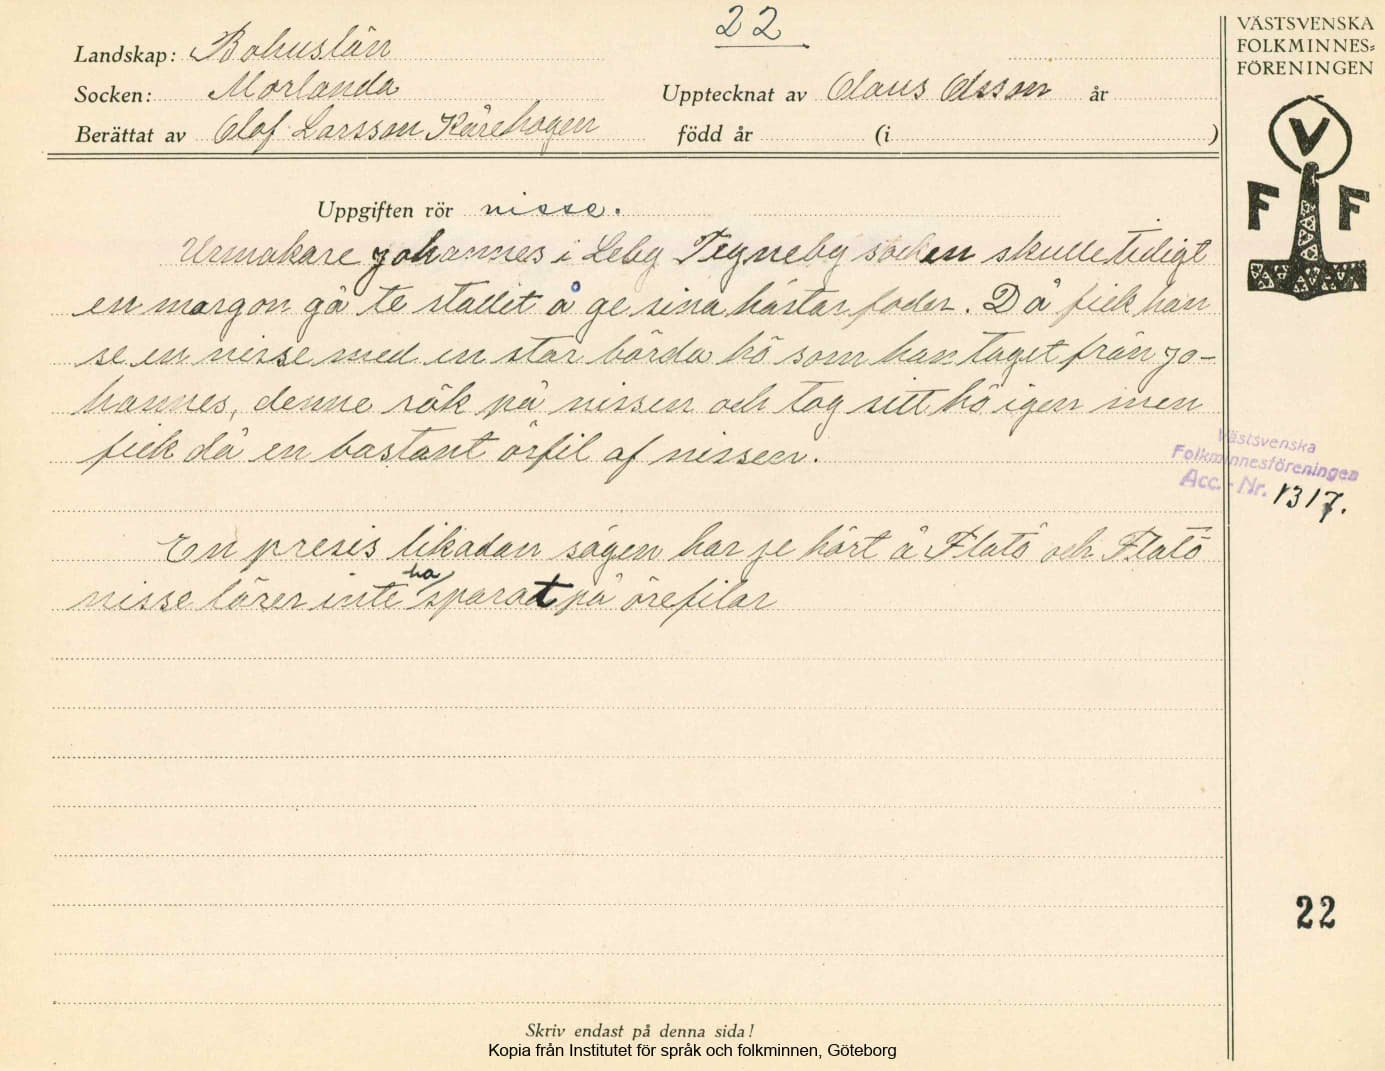 22
Landskap: Bohuslän
Socken: Morlanda
Upptecknat av Claus Olsson år
Berättat av Olof Larsson Kårehogen född år (i )
VÄSTSVENSKA
FOLKMINNES=
FÖRENINGEN
V
F F
Uppgiften rör nisse.
Urmakare Johannes i Leby Tegneby socken skulle tidigt
en margon gå te stallet å ge sina hästar foder. Då fick han
se en nisse med en stor börda hö som han taget från Jo-
hannes, denne rök på nissen och tog sitt hö igen men
fick då en bastant örfil af nissen.
Västsvenska
Folkminnesföreningen
Acc.-Nr. 1317.
En presis likadan sägen har je hört å Flatö och Flatö
nisse lärer inte ha sparat på örefilar
22
Skriv endast på denna sida!
Kopia från Institutet för språk och folkminnen, Göteborg